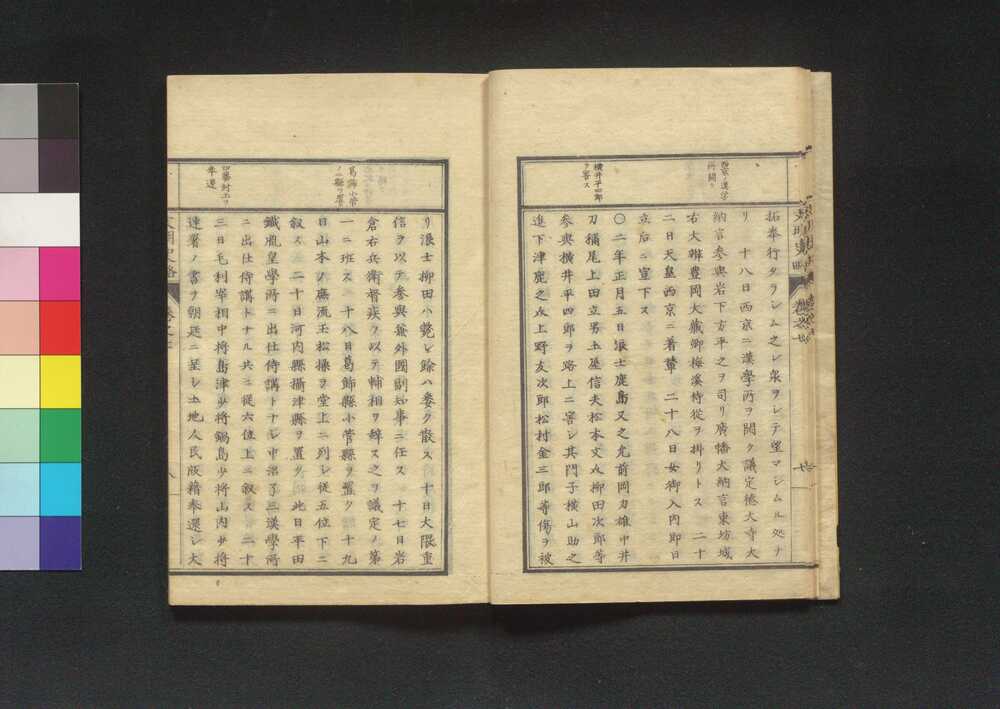 西京ニ漢学
所開ク
横井平四郎
ヲ害ス
拓奉行タラシム之レ衆ヲシテ望マシムル処ナ
リ 十八日西京ニ漢學所ヲ開ク議定徳大寺大
納言参與岩下方平之ヲ司リ廣幡大納言東坊城
右大辨豊岡大蔵卿梅溪侍從ヲ掛リトス 二十
二日天皇西京ニ着輦 二十八日女御入内即日
立后ニ宣下ス
〇二年正月五日浪士鹿島又之允前岡力雄中井
刀禰尾上田立男土屋信夫松本文永柳田次郎等
参與横井平四郎ヲ路上ニ害シ其門子横山助之
進下津鹿之永上野友次郎松村金三郎等傷ヲ被
葛飾小菅
ノ二縣ヲ置ク
四藩封土ヲ
奉還
リ浪士柳田ハ斃レ餘ハ悉ク散ス 十日大隈重
信ヲ以テ参與兼外國副知事ニ任ス 十七日岩
倉右兵衛督疾ヲ以テ輔相ヲ辭ス之ヲ議定ノ第
一ニ班ス 十八日葛飾縣小菅縣ヲ置ク 十九
日山本ノ庶流玉松操ヲ堂上ニ列シ從五位下ニ
叙ス 二十日河内縣攝津縣ヲ置ク 此日平田
鐵胤皇學所ニ出仕侍講トナシ中沼了三漢學所
ニ出仕侍講トナル共ニ從六位上ニ叙ス 二十
三日毛利宰相中将島津少将鍋島少将山内少将
連署ノ書ヲ朝廷ニ呈シ土地人民版籍奉還シ大